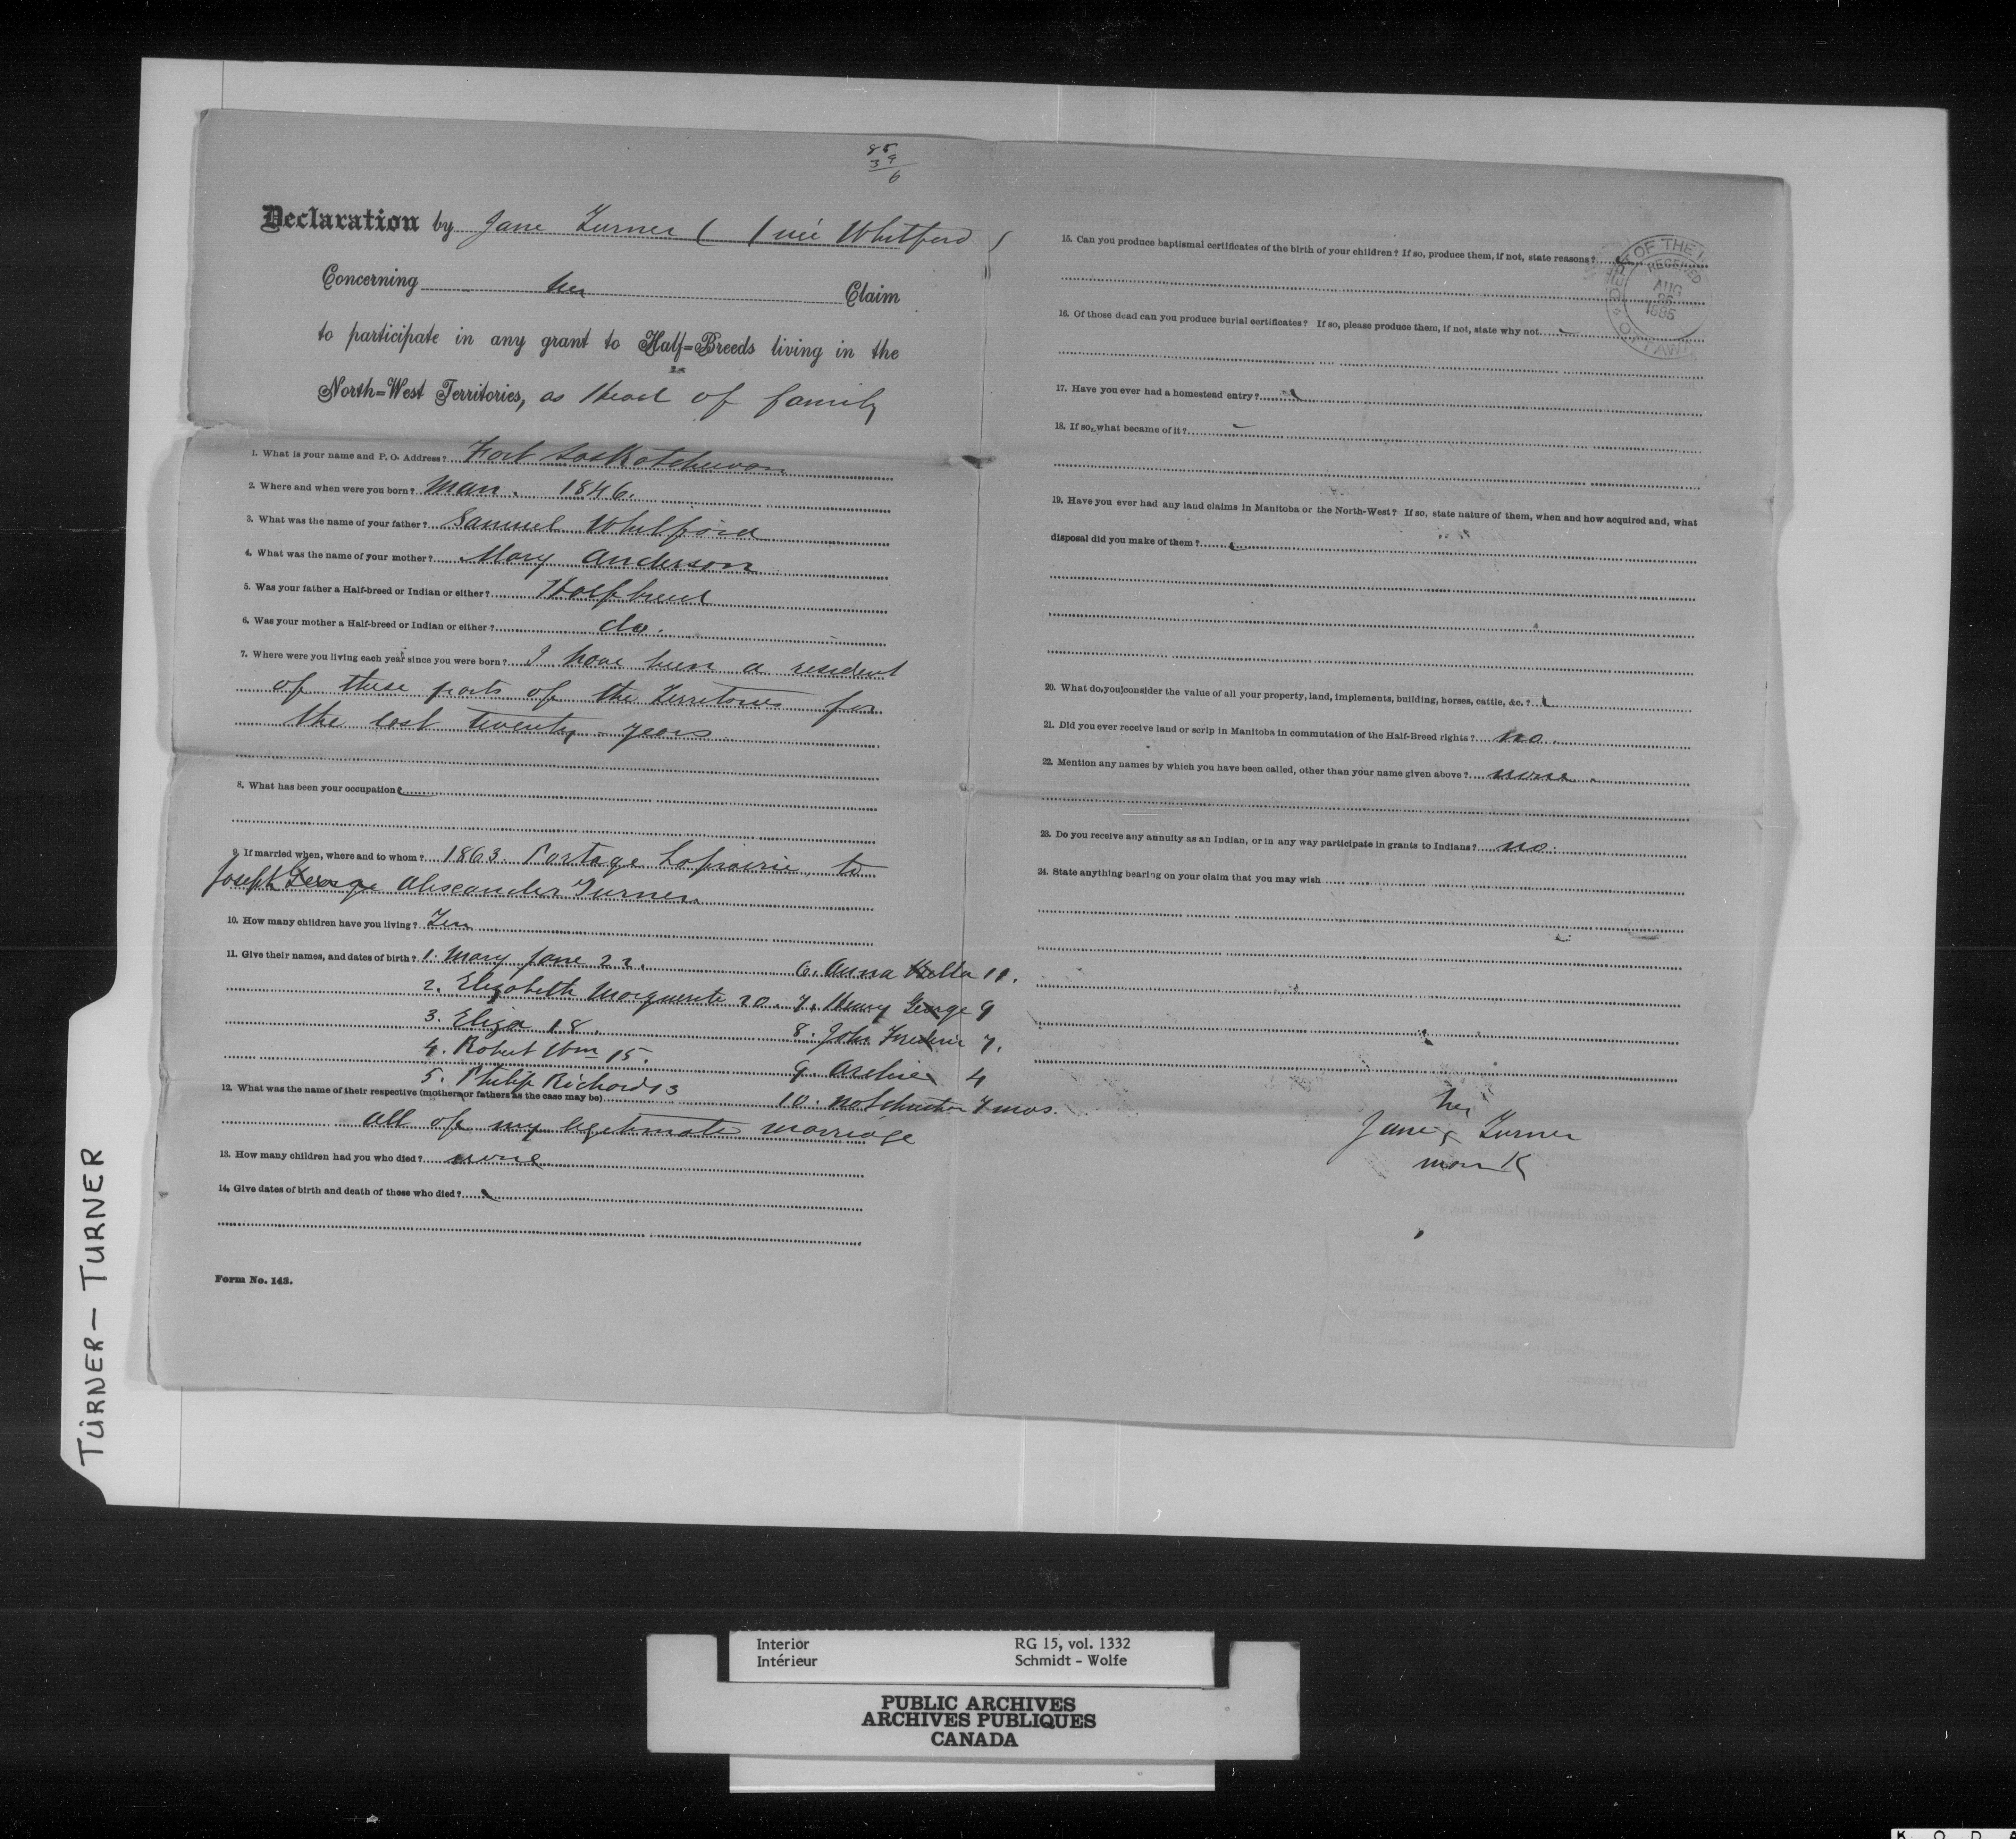 85
39
6
Declaration by Jane Turner ( (née Whitford )
Concerning her Claim
to participate in any grant to Half=Breeds living in the
North=West Territories, as Head of family
1. What is your name and P. O. Address? Fort Saskatchewan
2. Where and when were you born? Man. 1846.
3. What was the name of your father? Samuel Whitford
4. What was the name of your mother? Mary Anderson
5. Was your father a Half-breed or Indian or either? Halfbreed
6. Was your mother a Half-breed or Indian or either? do.
7. Where were you living each year since you were born? I have been a resident
of these parts of the Territories for
the last twenty years
8. What has been your occupation?
9. If married when, where and to whom? 1863. Portage Laprairie, to
Joseph George Alexander Turner
10. How many children have you living? Ten
11. Give their names, and dates of birth? 1. Mary Jane 22. 6. Anna Bella 11.
2. Elizabeth Marguerite 20. 7. Henry George 9
3. Eliza 18. 8. John Frederic 7.
4. Robert Wm 15. 9. Archie 4
5. Philip Richard 13 10. not christen 7 mos.
12. What was the name of their respective (mothers or fathers as the case may be)
all of my legitimate marriage
13. How many children had you who died? none
14. Give dates of birth and death of those who died?
Form No. 143.
15. Can you produce baptismal certificates of the birth of your children? If so, produce them, if not, state reasons?
OF THE
RECEIVED
AUG
26
1885
OTTAWA
16. Of those dead can you produce burial certificates? If so, please produce them, if not, state why not
17. Have you ever had a homestead entry?
18. If so, what became of it?
19. Have you ever had any land claims in Manitoba or the North-West? If so, state nature of them, when and how acquired and, what
disposal did you make of them?
20. What do you consider the value of all your property, land, implements, building, horses, cattle, &c.?
21. Did you ever receive land or scrip in Manitoba in commutation of the Half-Breed rights? no.
22. Mention any names by which you have been called, other than your name given above? none.
23. Do you receive any annuity as an Indian, or in any way participate in grants to Indians? no.
24. State anything bearing on your claim that you may wish
her
Jane x Turner
mark
TURNER — TURNER
Interior RG 15, vol. 1332
Intérieur Schmidt - Wolfe
PUBLIC ARCHIVES
ARCHIVES PUBLIQUES
CANADA